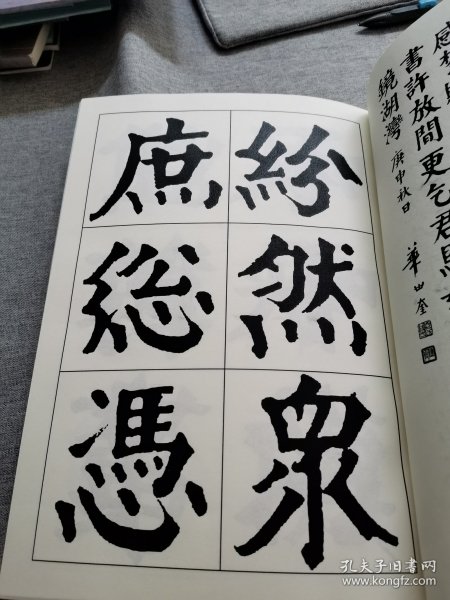 感
書許放閒更乞君
鏡湖灣 庚申秋日 華世奎
紛然衆
庶總憑
孔夫子旧书网
www.kongfz.com